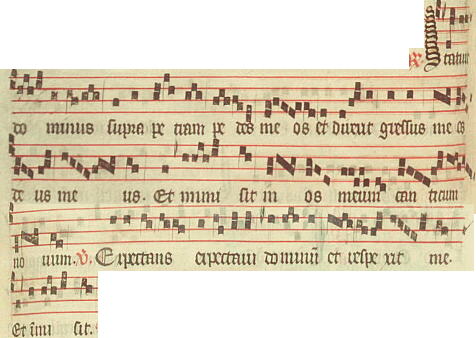 R. Statuit
do minus supra pe tram pe des me os et direxit gressus me os
de us me us. Et inmi sit in os meum can ticum
no uum. V. Expectans expectaui dominū et respe xit me.
Et īmi sit.